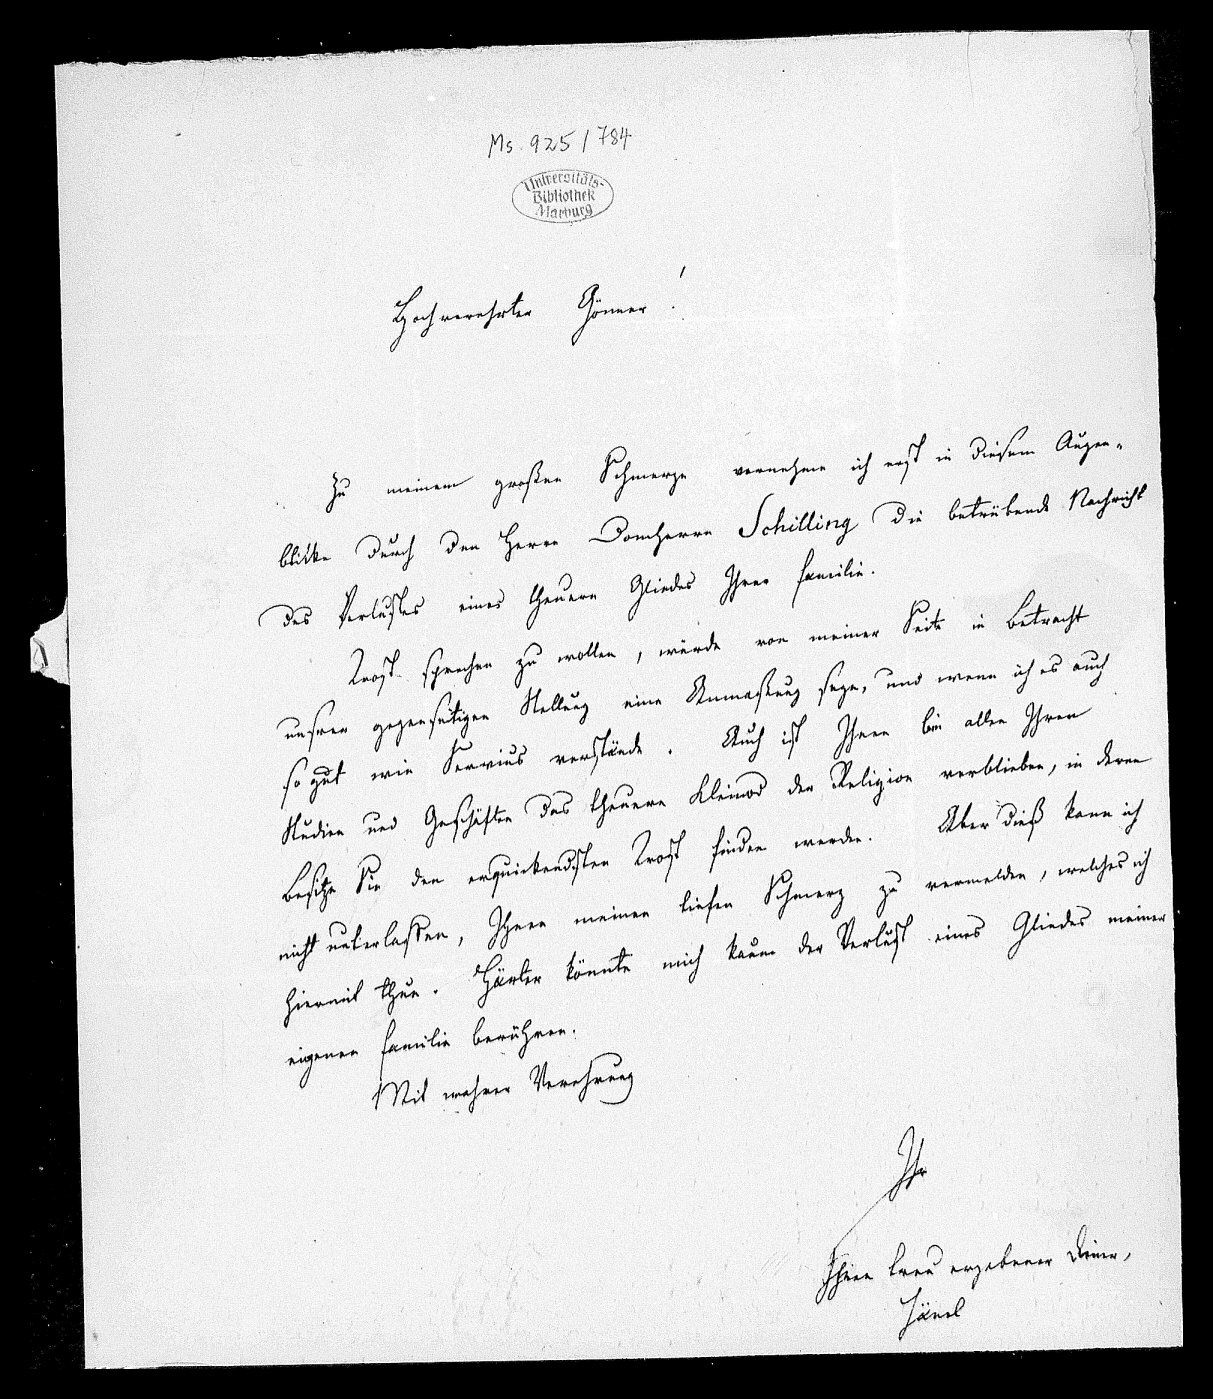 Ms. 925/784
Universitäts-
Bibliothek
Marburg
Hochverehrter Gönner!
Zu meinem großen Schmerze vernehme ich erst in diesem Augen-
blicke durch den Herrn Domherrn Schilling die betrübende Nachricht
des Verlustes eines theuern Gliedes Ihrer Familie.
Trost sprechen zu wollen, würde von meiner Seite in Betracht
unsrer gegenseitigen Stellung eine Anmaßung seyn, und wenn ich es auch
so gut wie Servius verstände. Auch ist Ihnen bei allen Ihren
Studien und Geschäften das theuere Kleinod der Religion verblieben, in deren
Besitze Sie den erquickendsten Trost finden werden. Aber dieß kann ich
nicht unterlassen, Ihnen meinen tiefen Schmerz zu vermelden, welches ich
hiermit thue. Härter könnte mich kaum der Verlust eines Gliedes meiner
eigenen Familie berühren.
Mit wahrer Verehrung
Ihr
Ihnen treu ergebener Diener,
Hänel